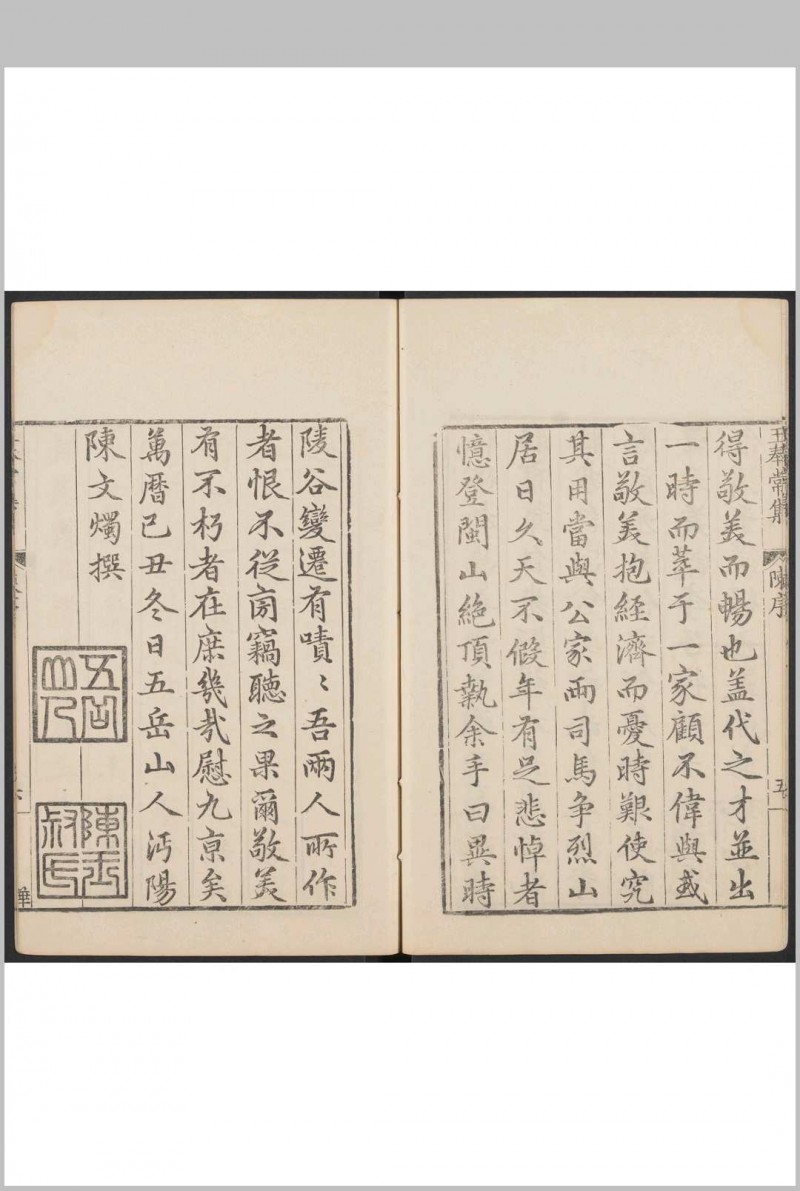 王奉常集
陳序
五
得敬美而暢也盖代之才並出
一時而萃于一家顧不偉與或
言敬美抱經濟而憂時艱使究
其用當與公家兩司馬争烈山
居日久天不假年有足悲悼者
憶登閩山絶頂執余手曰異時
陵谷變遷有嘖〻吾兩人所作
者恨不從㫄竊聽之果爾敬美
有不朽者在庶幾㢤慰九京矣
萬曆己丑冬日五岳山人沔陽
陳文燭撰
五岳山人
陳玉叔氏